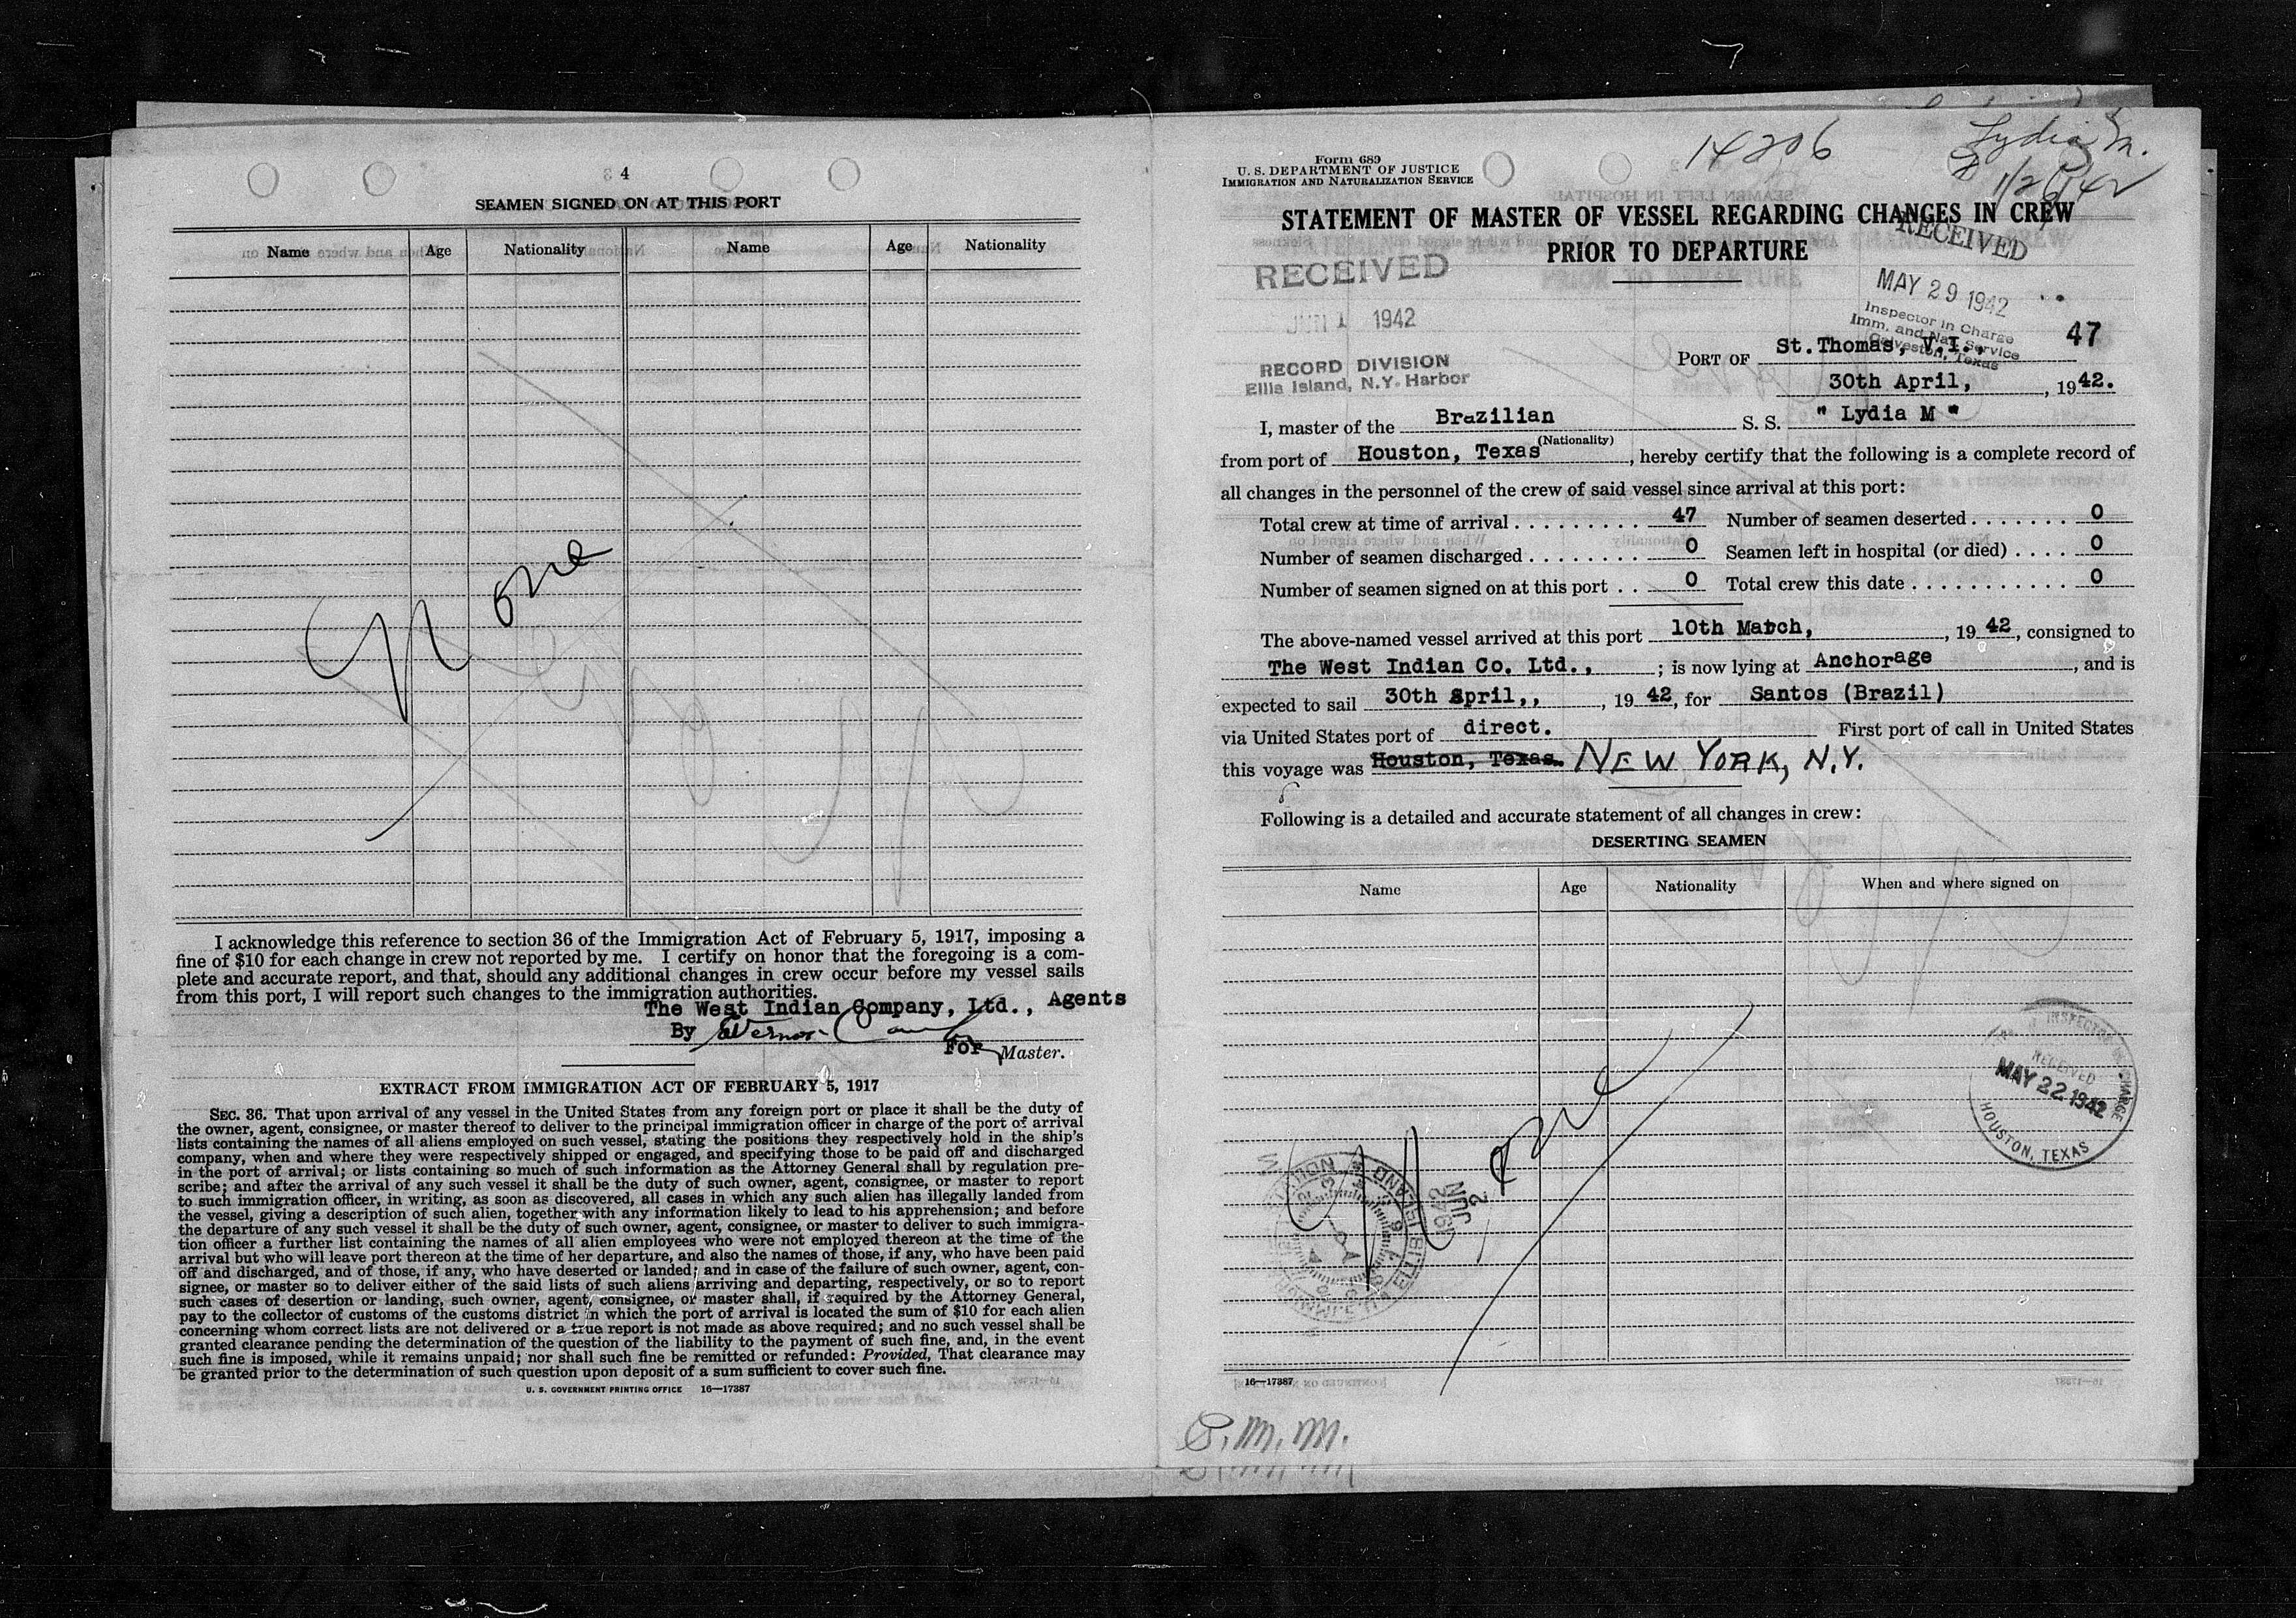 4
SEAMEN SIGNED ON AT THIS PORT
Name Age Nationality Name Age Nationality
None
I acknowledge this reference to section 36 of the Immigration Act of February 5, 1917, imposing a
fine of $10 for each change in crew not reported by me. I certify on honor that the foregoing is a com-
plete and accurate report, and that, should any additional changes in crew occur before my vessel sails
from this port, I will report such changes to the immigration authorities.
The West Indian Company, Ltd., Agents
By
For Master.
EXTRACT FROM IMMIGRATION ACT OF FEBRUARY 5, 1917
SEC. 36. That upon arrival of any vessel in the United States from any foreign port or place it shall be the duty of
the owner, agent, consignee, or master thereof to deliver to the principal immigration officer in charge of the port of arrival
lists containing the names of all aliens employed on such vessel, stating the positions they respectively hold in the ship's
company, when and where they were respectively shipped or engaged, and specifying those to be paid off and discharged
in the port of arrival; or lists containing so much of such information as the Attorney General shall by regulation pre-
scribe; and after the arrival of any such vessel it shall be the duty of such owner, agent, consignee, or master to report
to such immigration officer, in writing, as soon as discovered, all cases in which any such alien has illegally landed from
the vessel, giving a description of such alien, together with any information likely to lead to his apprehension; and before
the departure of any such vessel it shall be the duty of such owner, agent, consignee, or master to deliver to such immigra-
tion officer a further list containing the names of all alien employees who were not employed thereon at the time of the
arrival but who will leave port thereon at the time of her departure, and also the names of those, if any, who have been paid
off and discharged, and of those, if any, who have deserted or landed; and in case of the failure of such owner, agent, con-
signee, or master so to deliver either of the said lists of such aliens arriving and departing, respectively, or so to report
such cases of desertion or landing, such owner, agent, consignee, or master shall, if required by the Attorney General,
pay to the collector of customs of the customs district in which the port of arrival is located the sum of $10 for each alien
concerning whom correct lists are not delivered or a true report is not made as above required; and no such vessel shall be
granted clearance pending the determination of the question of the liability to the payment of such fine, and, in the event
such fine is imposed, while it remains unpaid; nor shall such fine be remitted or refunded: Provided, That clearance may
be granted prior to the determination of such question upon deposit of a sum sufficient to cover such fine.
U. S. GOVERNMENT PRINTING OFFICE 16—17387
Form 689
U. S. DEPARTMENT OF JUSTICE
IMMIGRATION AND NATURALIZATION SERVICE
14206
Lydia M.
1/26/42
STATEMENT OF MASTER OF VESSEL REGARDING CHANGES IN CREW
PRIOR TO DEPARTURE
RECEIVED
JUN 1 1942
RECORD DIVISION
Ellis Island, N.Y. Harbor
RECEIVED
MAY 29 1942
Inspector in Charge
Imm. and Nat. Service
Galveston, Texas
47
PORT OF St.Thomas, V.I.,
30th April, , 1942.
I, master of the Brazilian S. S. " Lydia M "
(Nationality)
from port of Houston, Texas , hereby certify that the following is a complete record of
all changes in the personnel of the crew of said vessel since arrival at this port:
Total crew at time of arrival . . . . . . . . . 47 Number of seamen deserted . . . . . . . 0
Number of seamen discharged . . . . . . . . 0 Seamen left in hospital (or died) . . . . 0
Number of seamen signed on at this port . . 0 Total crew this date . . . . . . . . . . . . 0
The above-named vessel arrived at this port 10th March, , 19 42, consigned to
The West Indian Co. Ltd., ; is now lying at Anchorage , and is
expected to sail 30th April,, , 19 42, for Santos (Brazil)
via United States port of direct. First port of call in United States
this voyage was Houston, Texas. NEW YORK, N.Y.
Following is a detailed and accurate statement of all changes in crew:
DESERTING SEAMEN
Name Age Nationality When and where signed on
None
INSPECTOR IN CHARGE
RECEIVED
MAY 22 1942
HOUSTON, TEXAS
ELLIS ISLAND
1942
JUN
2
16—17387
S.M.M.